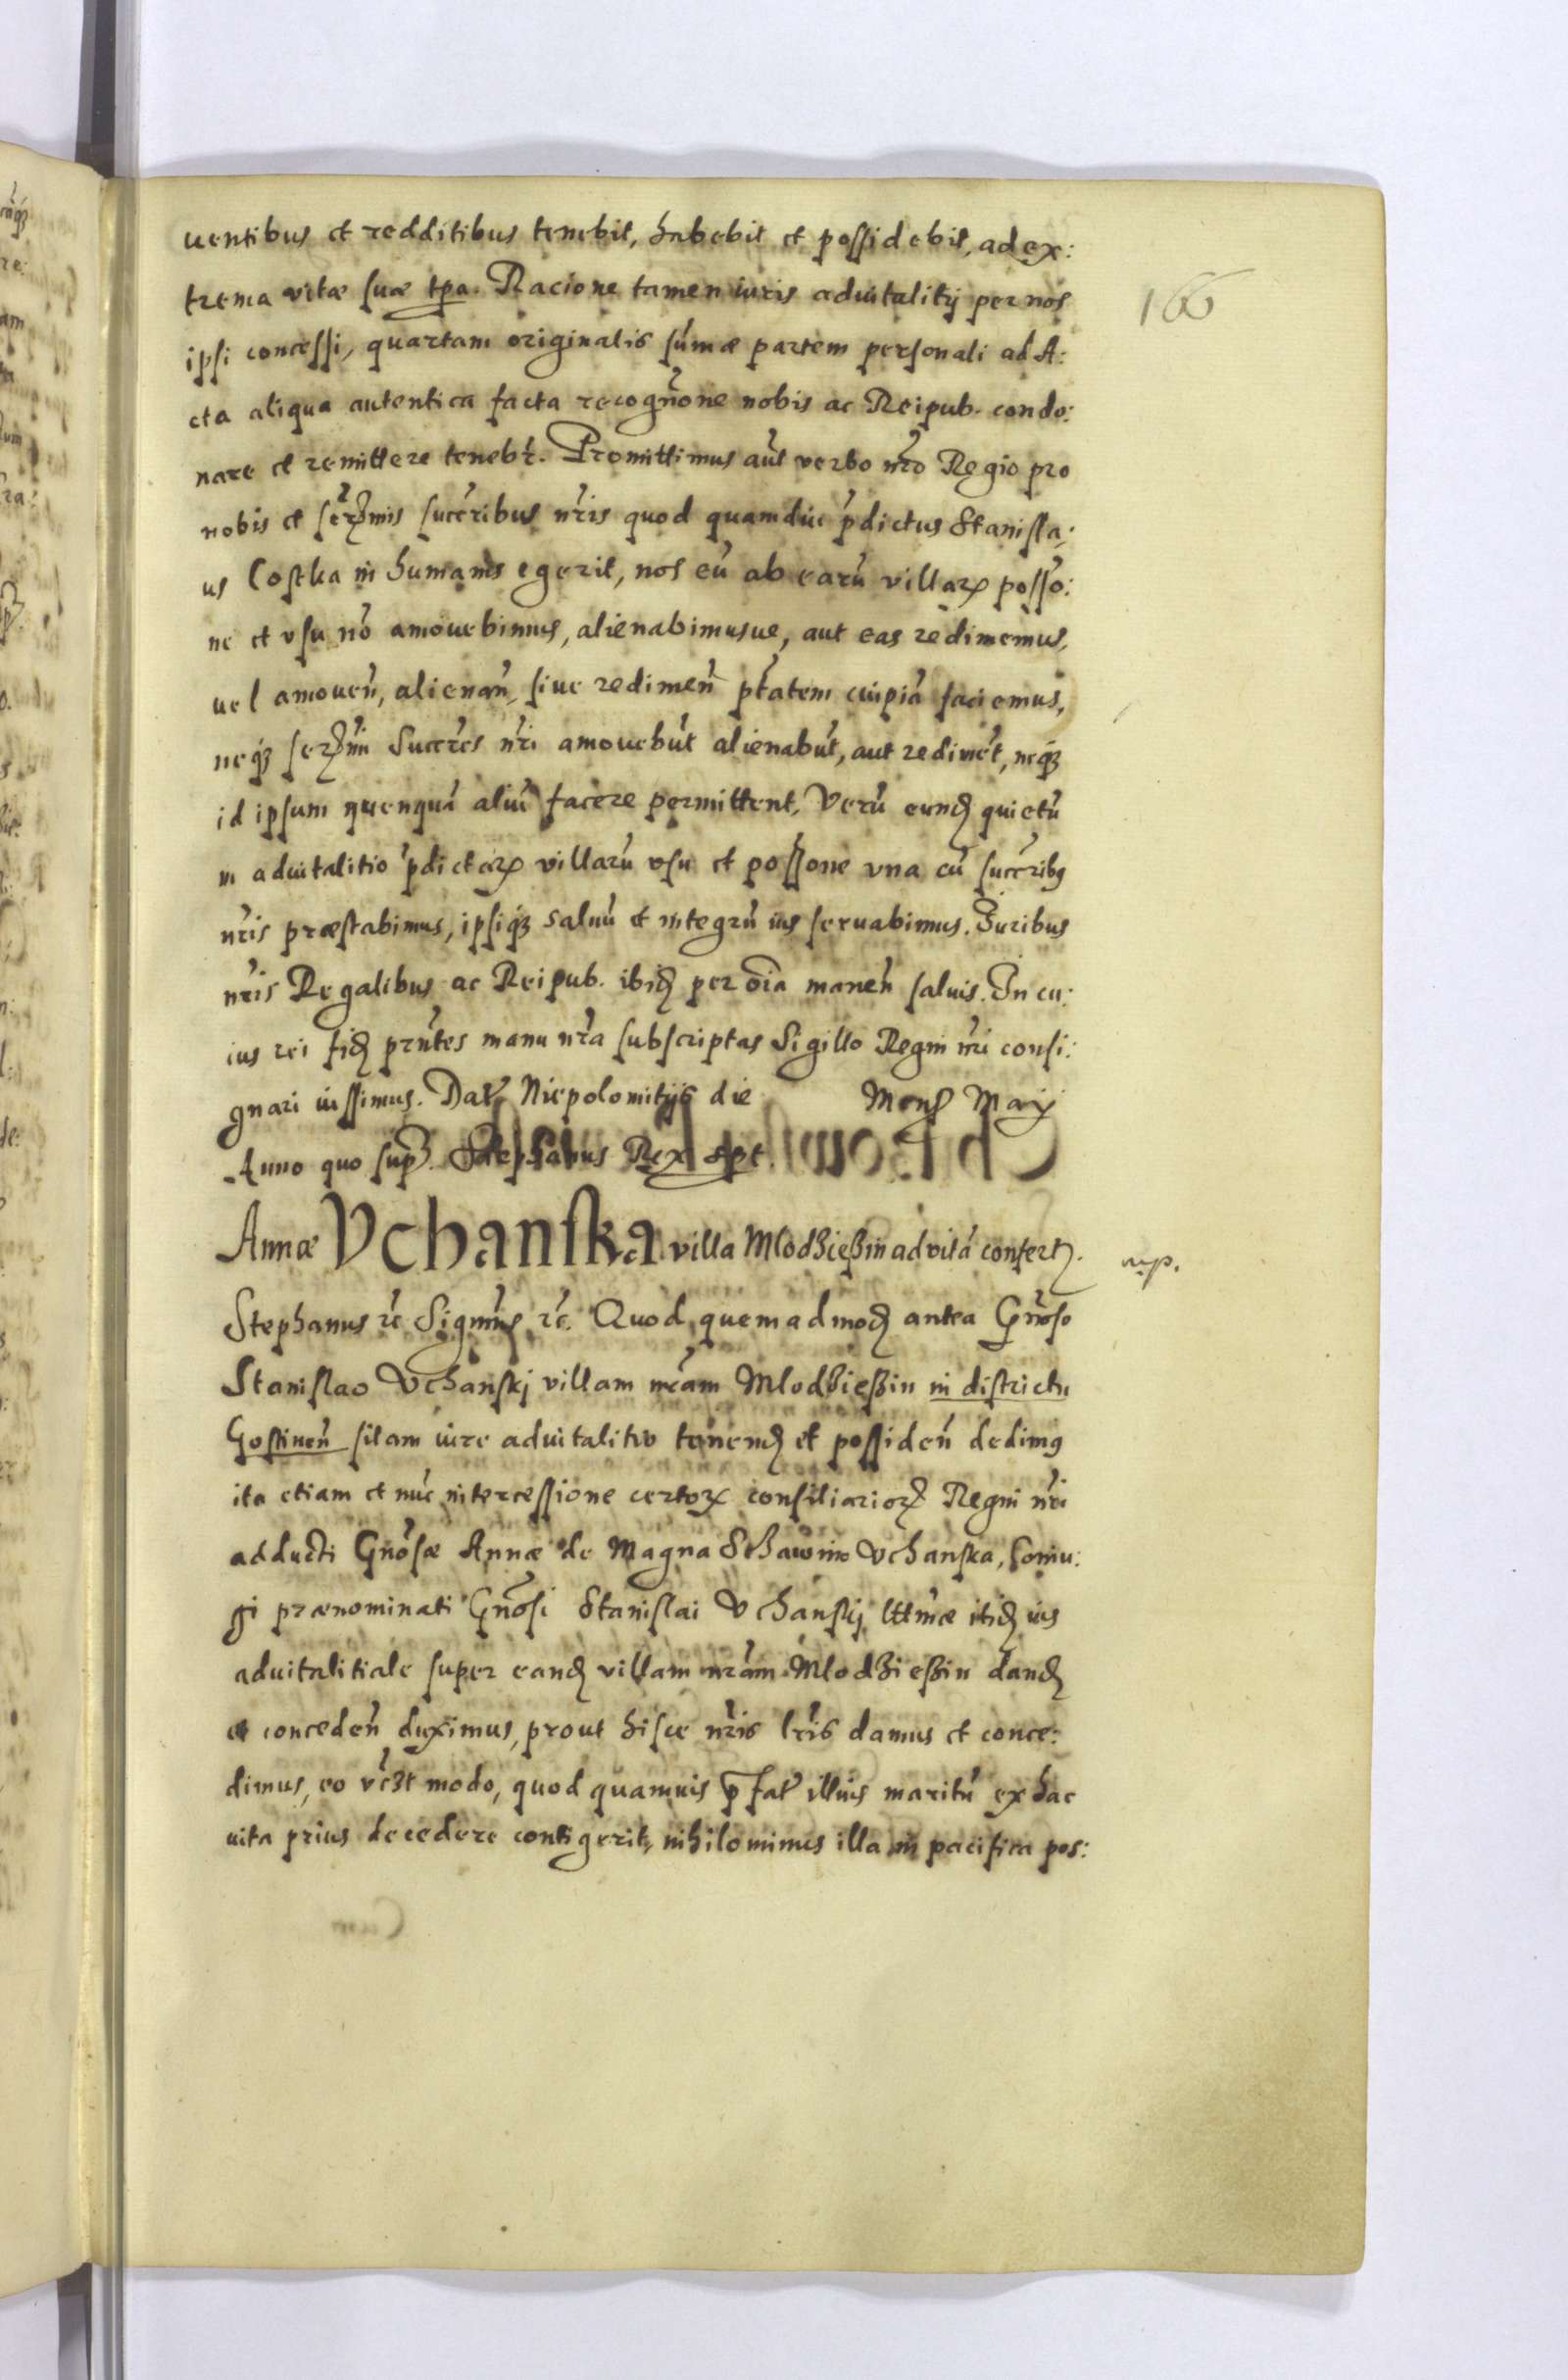 uentibus et redditibus tenebit, habebit et possidebit, ad ex:
trema vitæ suæ tpa. Racione tamen iuris aduitalitij per nos
ipsi concessi, quartam originalis sūmæ partem personali ad A:
cta aliqua autentica facta recogn̄one nobis ac Reipub. condo:
nare et remittere tenebr̄. Promittimus aūt verbo nr̄o Regio pro
nobis et ser̄mis succr̄ibus nr̄is quod quamdiu p̄dictus Stanisla:
us Costka in humanis egerit, nos eū ab earū villarꝝ posso̅:
ne et vsu nō amouebimus, alienabimusue, aut eas redimemus,
uel amouen̄, alienan̄, siue redimen̄ ptātem cuipiā faciemus,
neqꝫ ser̄mi Succr̄es nr̄i amouebūt alienabūt, aut redimēt, neqꝫ
id ipsum quenquā aliū facere permittent, Verū eund̄ quietū
in aduitalitio p̄dictarꝝ villarū vsu et poss̄one vna cū succr̄ibꝰ
nr̄is præstabimus, ipsiqꝫ saluū et integrū ius seruabimus. Iuribus
nr̄is Regalibus ac Reipub. ibid̄ per oīa manen̄ saluis. In cu:
ius rei fid̄ prn̄tes manu nr̄a subscriptas Sigillo Regni nr̄i consi:
gnari iussimus. Dat̄ Niepolomitijs die Mens̄ Maij
Anno quo sup̄. Stephanus Rex spt.
Annæ Vchanska villa Mlodzieszin ad vitā confert̄.
Stephanus rc̄ Signm̄s rc̄. Quod quemadmod̄ antea Gn̄oso
Stanislao Vchanskj villam nr̄am Mlodzieszin in districtu
Gostinen̄ sitam iure aduitalitio tenend̄ et possiden̄ dedimꝰ
ita etiam et nūc intercessione certorꝝ consiliariorꝝ Regni nr̄i
adducti Gn̄osæ Annæ de Magna Schawino Vchanska, Coniu:
gi prænominati Gn̄osi Stanislai Vchanskj lttm̄æ itid̄ ius
aduitalitiale super eand̄ villam nr̄am Mlodzieszin dand̄
et conceden̄ duximus, prout hisce nr̄is lr̄is damus et conce:
dimus, eo vcz̄t modo, quod quamuis p̄fat̄ illius maritū ex hac
uita prius decedere contigerit, nihilominus illa in pacifica pos:
166